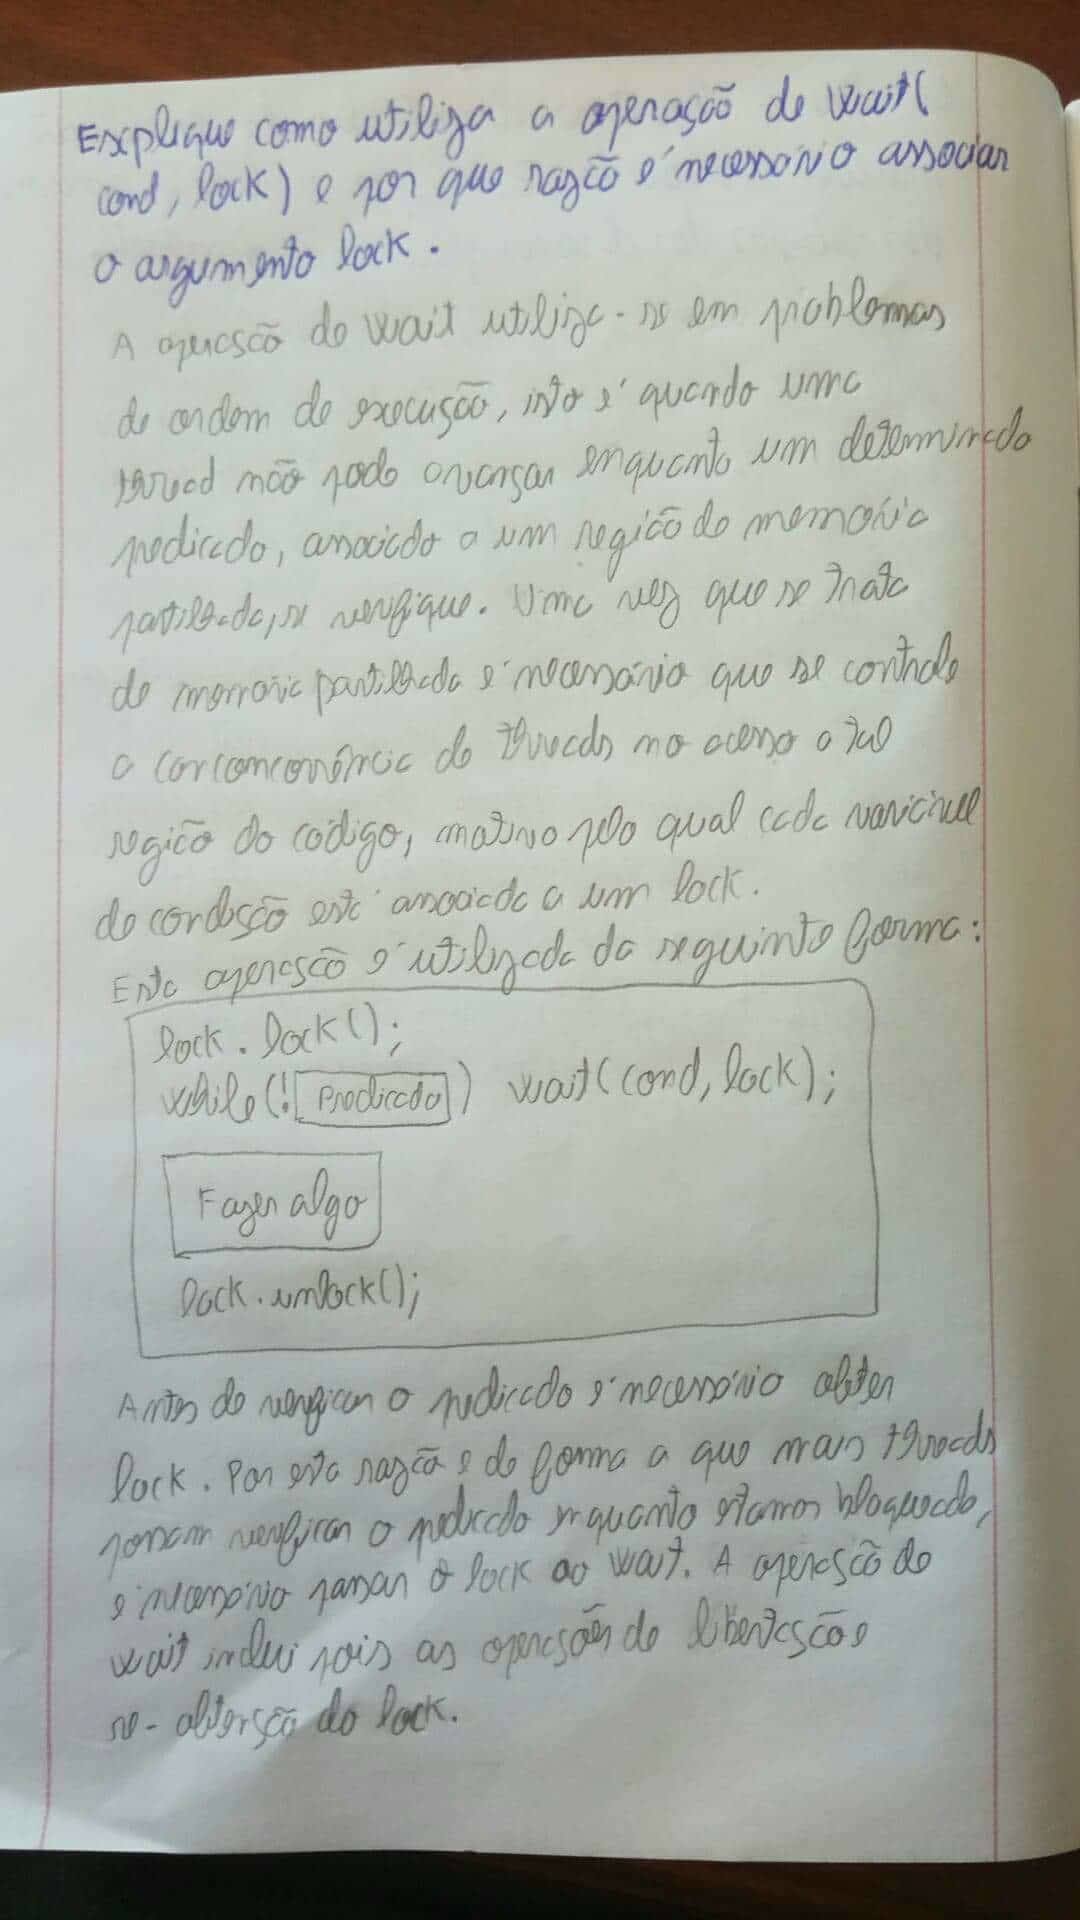 Explique como utiliza a operação de wait(
cond, lock) e por que razão é necessário associar
o argumento lock.
A operação de wait utiliza-se em problemas
de ordem de execução, isto é quando uma
thread não pode avançar enquanto um determinado
predicado, associado a um região de memória
partilhada, se verifique. Uma vez que se trata
de memória partilhada é necessário que se controle
a concorrência de threads no acesso a tal
região do código, motivo pelo qual cada variável
de condição está associada a um lock.
Esta operação é utilizada da seguinte forma:
lock.lock();
while(! Predicado ) wait(cond, lock);
Fazer algo
lock.unlock();
Antes de verificar o predicado é necessário obter
lock. Por esta razão e de forma a que mais threads
possam verificar o predicado enquanto estamos bloqueado,
é necessário passar o lock ao wait. A operação de
wait inclui pois as operações de libertação e
re-obtenção do lock.